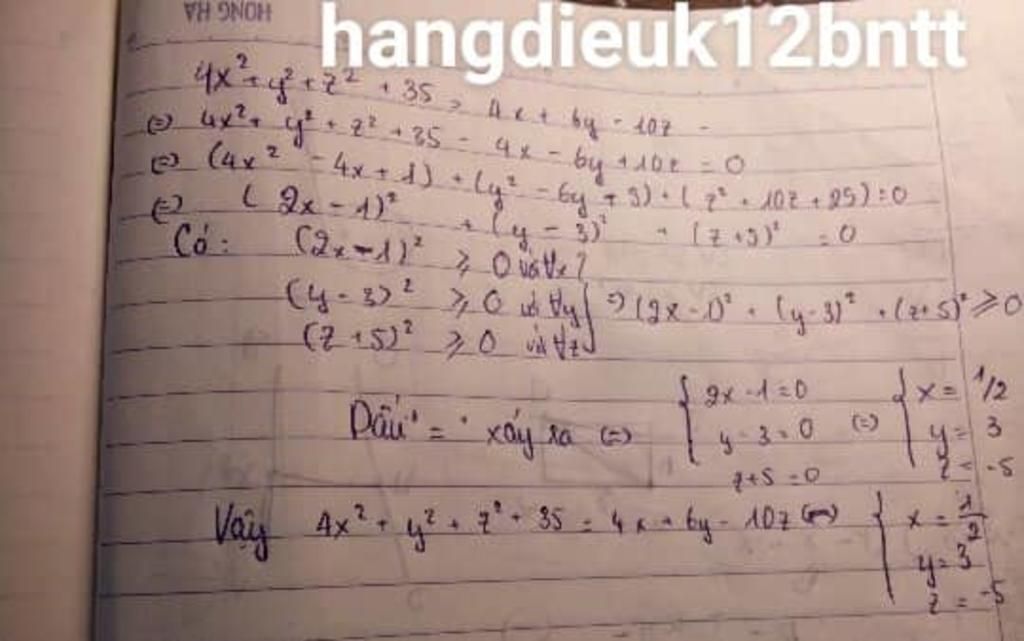 HỒNG HÀ
hangdieuk12bntt
4x² + y² + z² + 35 = 4x + 6y - 10z
(=) 4x² + y² + z² + 35 - 4x - 6y + 10z = 0
(=) (4x² - 4x + 1) + (y² - 6y + 9) + (z² + 10z + 25) = 0
(=) (2x - 1)² + (y - 3)² + (z + 5)² = 0
Có: (2x - 1)² ≥ 0 với ∀x
(y - 3)² ≥ 0 với ∀y } => (2x - 1)² + (y - 3)² + (z + 5)² ≥ 0
(z + 5)² ≥ 0 với ∀z
Dấu "=" xảy ra (=) { 2x - 1 = 0 (=) { x = 1/2
y - 3 = 0 y = 3
z + 5 = 0 z = -5
Vậy 4x² + y² + z² + 35 = 4x + 6y - 10z (=) { x = 1/2
y = 3
z = -5